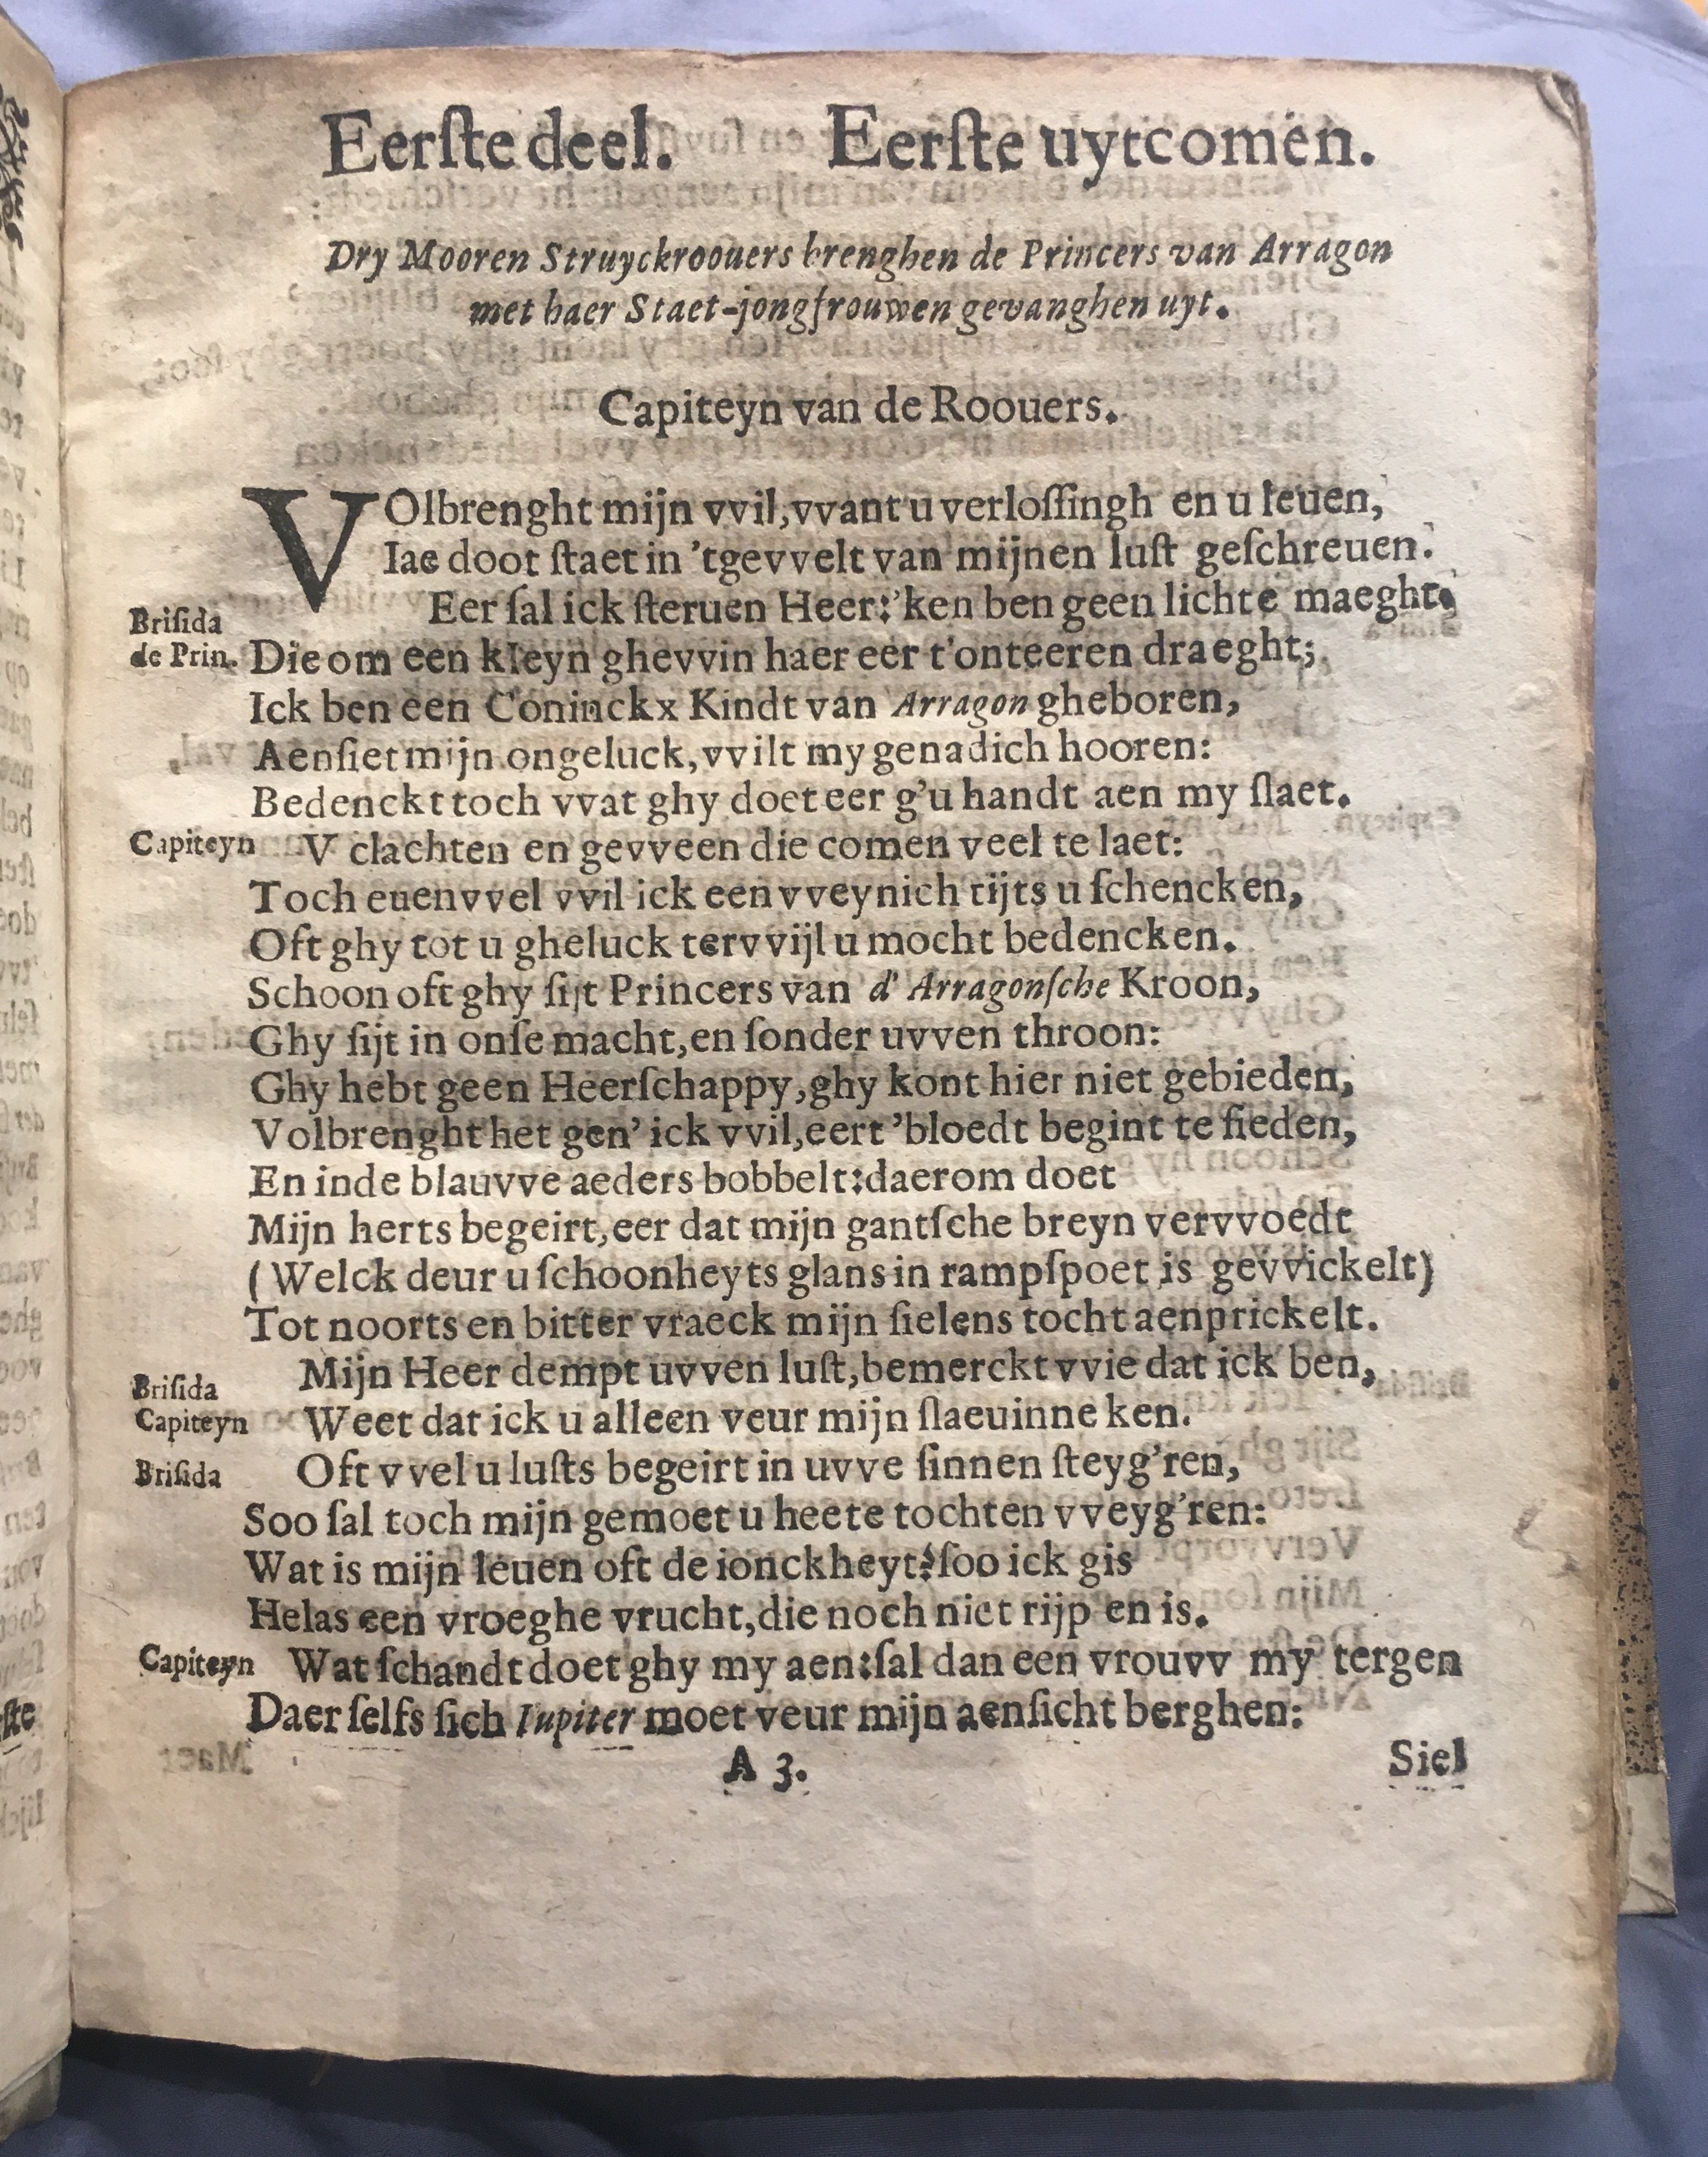 Eerſte deel. Eerſte uytcomen.
Dry Mooren Struyckroouers brenghen de Princers van Arragon
met haer Staet-jongfrouwen gevanghen uyt.
Capiteyn van de Roouers.
VOlbrenght mijn vvil, vvant u verloſſingh en u leuen,
Iae doot ſtaet in 'tgevvelt van mijnen luſt geſchreuen.
Briſida de Prin. Eer ſal ick ſteruen Heer: 'ken ben geen lichte maeght,
Die om een kleyn ghevvin haer eer t'onteeren draeght;
Ick ben een Coninckx Kindt van Arragon gheboren,
Aenſiet mijn ongeluck, vvilt my genadich hooren:
Bedenckt toch vvat ghy doet eer g'u handt aen my ſlaet.
Capiteyn V clachten en gevveen die comen veel te laet:
Toch euenvvel vvil ick een vveynich tijts u ſchencken,
Oft ghy tot u gheluck tervvijl u mocht bedencken.
Schoon oft ghy ſijt Princers van d' Arragonſche Kroon,
Ghy ſijt in onſe macht, en ſonder uvven throon:
Ghy hebt geen Heerſchappy, ghy kont hier niet gebieden,
Volbrenght het gen' ick vvil, eert 'bloedt begint te ſieden,
En inde blauvve aeders bobbelt: daerom doet
Mijn herts begeirt, eer dat mijn gantſche breyn vervvoedt
(Welck deur u ſchoonheyts glans in rampſpoet is gevvickelt)
Tot noorts en bitter vraeck mijn ſielens tocht aenprickelt.
Briſida Mijn Heer dempt uvven luſt, bemerckt vvie dat ick ben,
Capiteyn Weet dat ick u alleen veur mijn ſlaeuinne ken.
Briſida Oft vvel u luſts begeirt in uvve ſinnen ſteyg'ren,
Soo ſal toch mijn gemoet u heete tochten vveyg'ren:
Wat is mijn leuen oft de ionckheyt? ſoo ick gis
Helas een vroeghe vrucht, die noch niet rijp en is.
Capiteyn Wat ſchandt doet ghy my aen: ſal dan een vrouvv my tergen
Daer ſelfs ſich Iupiter moet veur mijn aenſicht berghen:
A 3. Siel